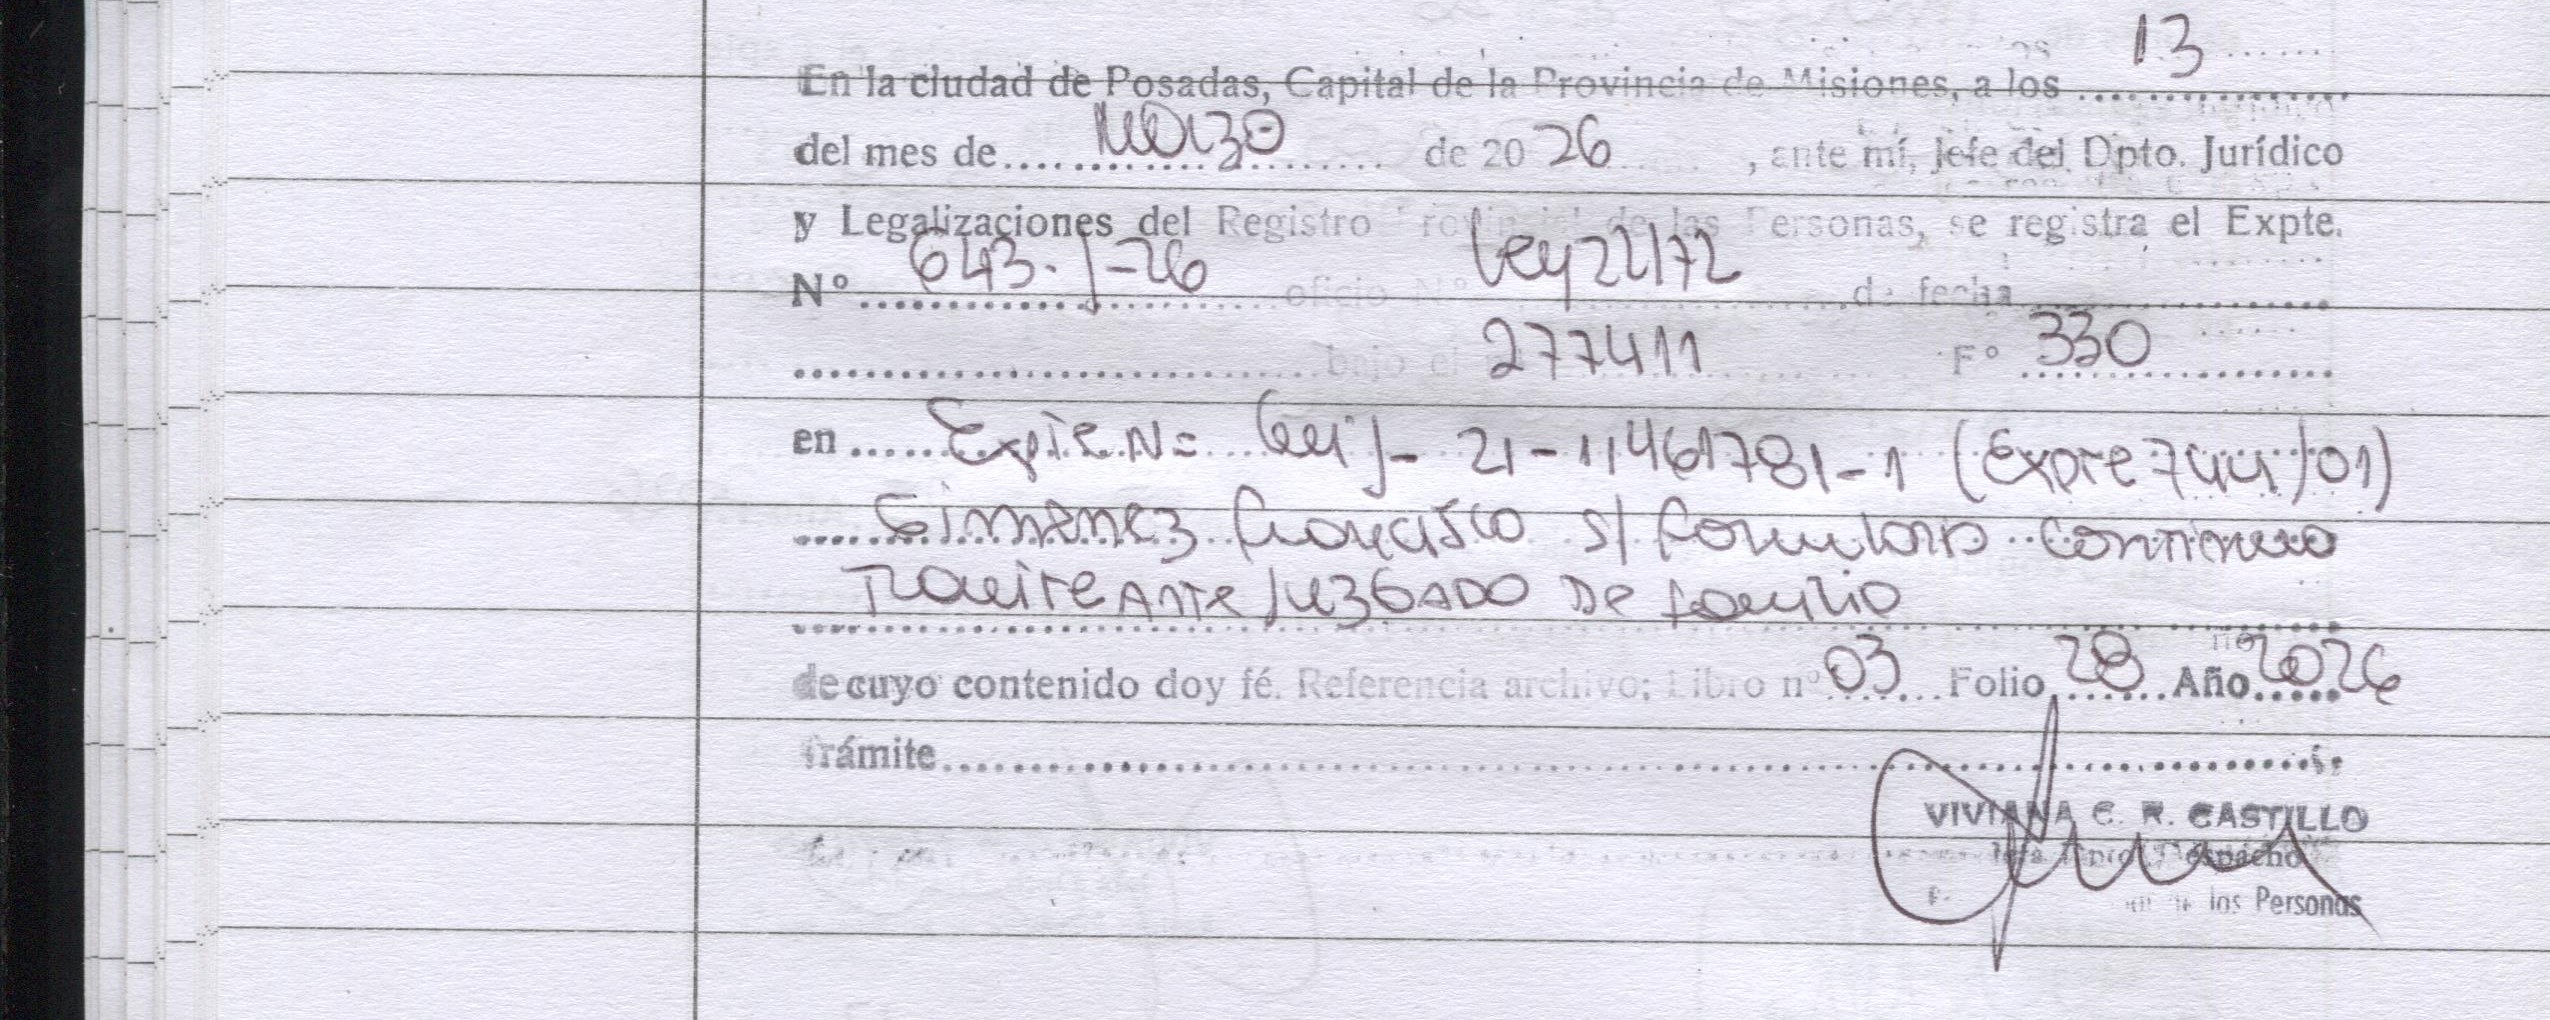 En la ciudad de Posadas, Capital de la Provincia de Misiones, a los 13
del mes de Marzo de 2026, ante mí, Jefe del Dpto. Jurídico
y Legalizaciones del Registro Provincial de las Personas, se registra el Expte.
Nº 643-J-26 oficio Nº Ley 22172 de fecha
bajo el 277411 Fº 330
en Expte N= 21-11461781-1 (Expte 744/01)
Gimenez Francisco s/ continua
Tramite Ante Juzgado De familia
de cuyo contenido doy fé. Referencia archivo: Libro nº 03 Folio 28 Año 2026
Trámite
VIVIANA C. R. CASTILLO
Jefa Dpto. Despacho
de las Personas